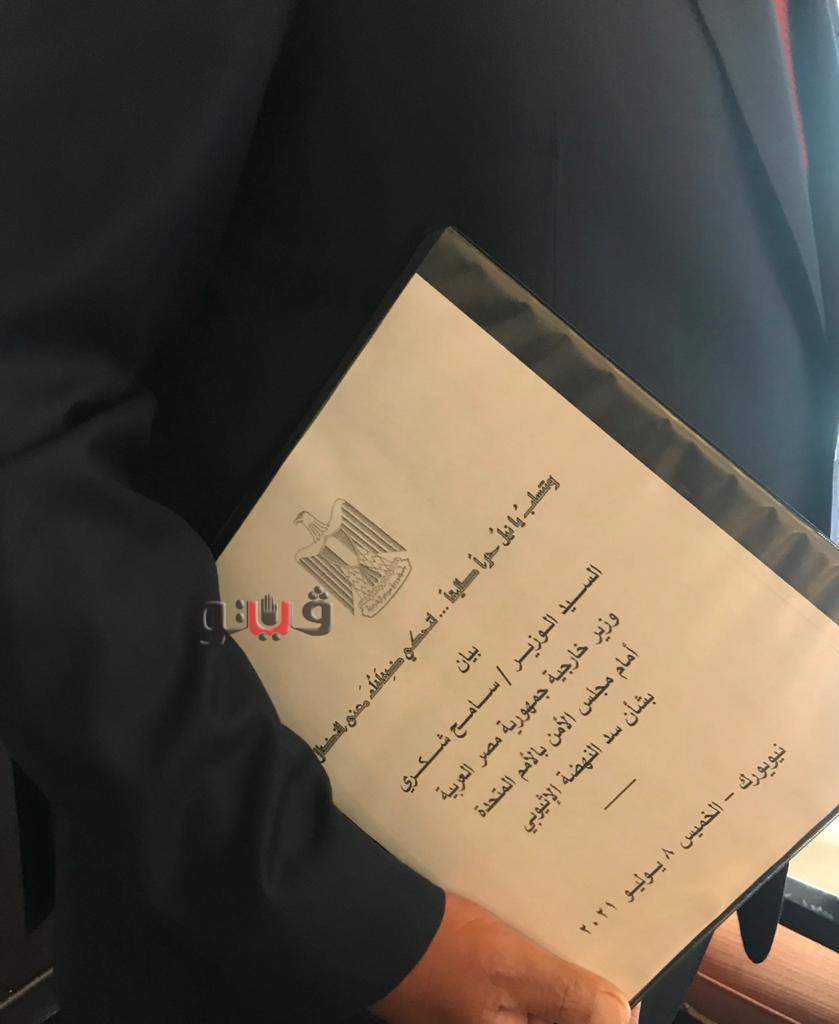 يا نيل حراً طليقاً... لتحكي ضفافك معنى النضال
بيان
السيد الوزير / سامح شكري
وزير خارجية جمهورية مصر العربية
أمام مجلس الأمن بالأمم المتحدة
بشأن سد النهضة الإثيوبي
نيويورك - الخميس ٨ يوليو ٢٠٢١
ڤيتو